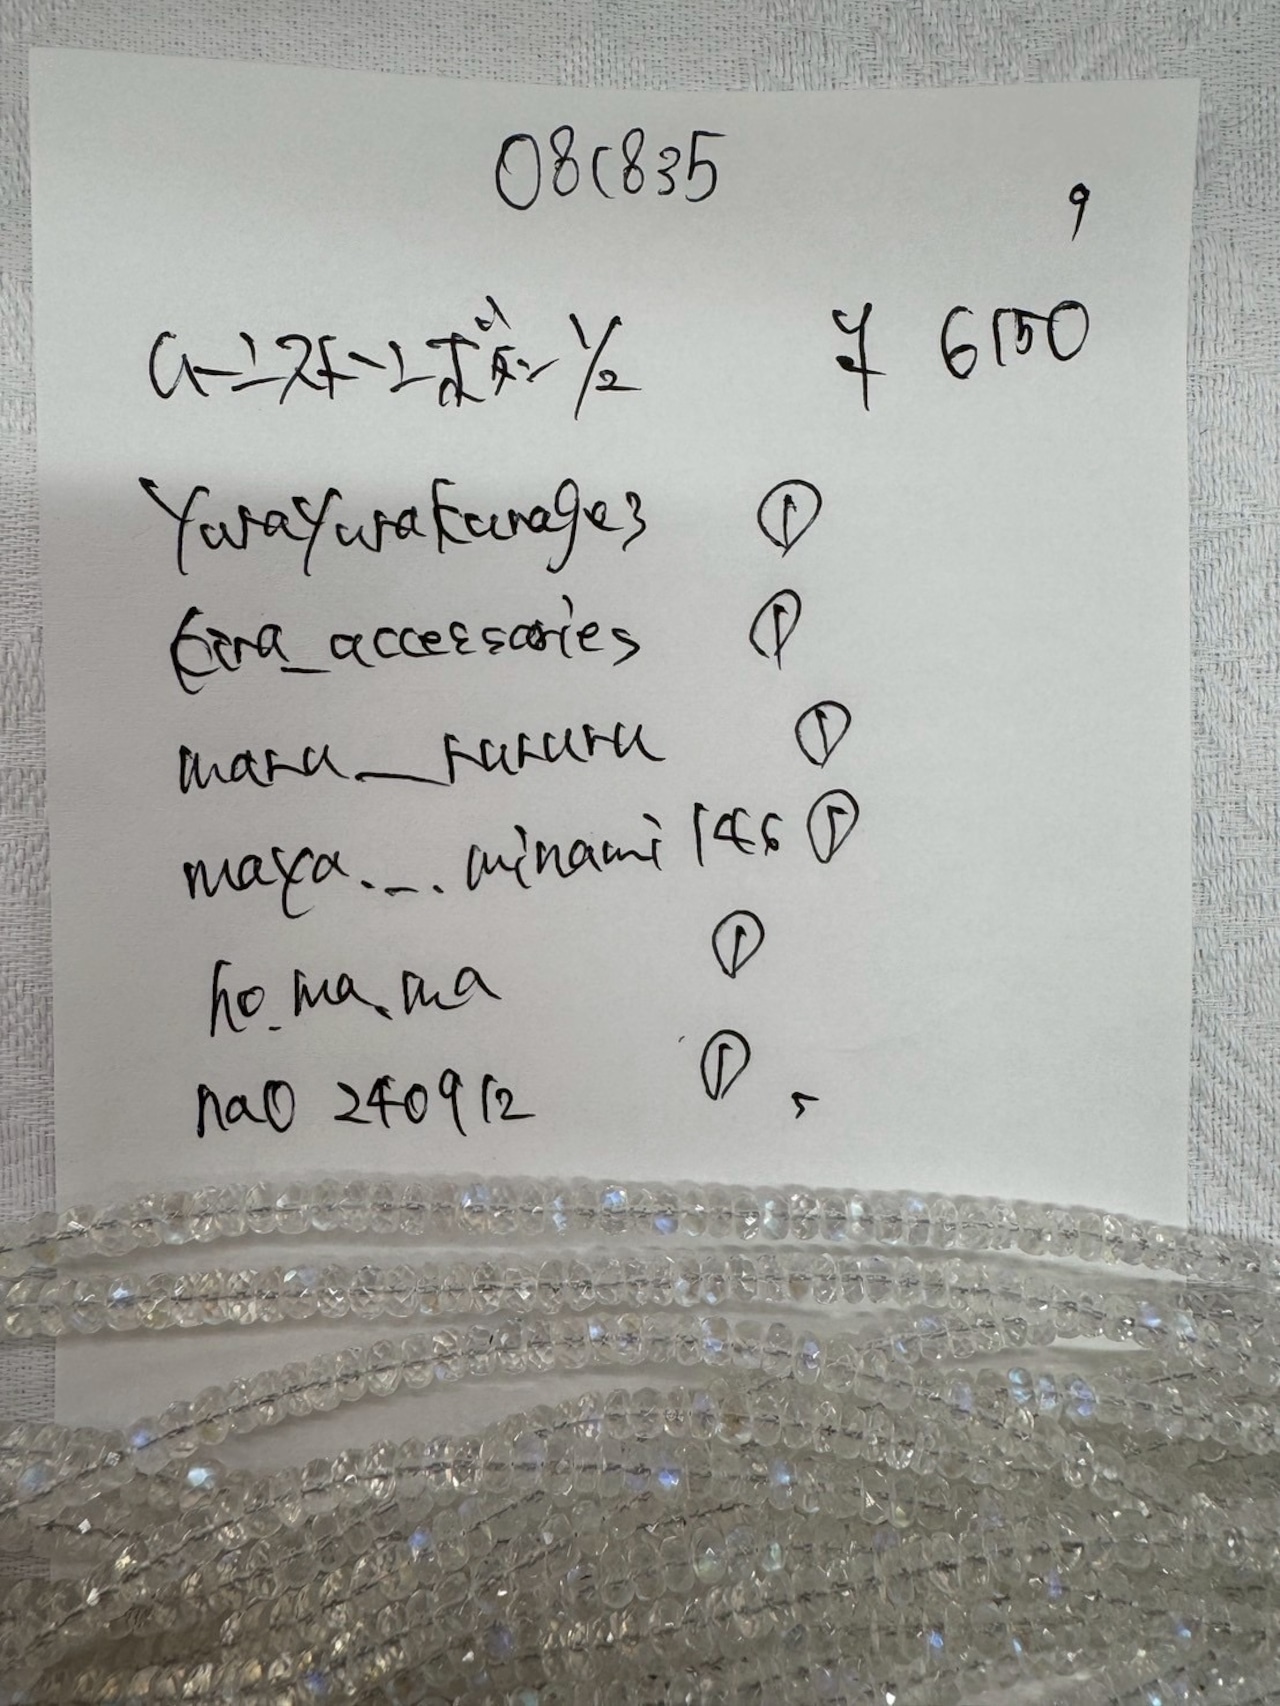 08C835
9
1/2 ¥ 6150
YurayuraKurage3 ①
_accessories ①
maru_rururu ①
maya._.minami146 ①
ho.ma.ma ①
naO 240912 ①
5